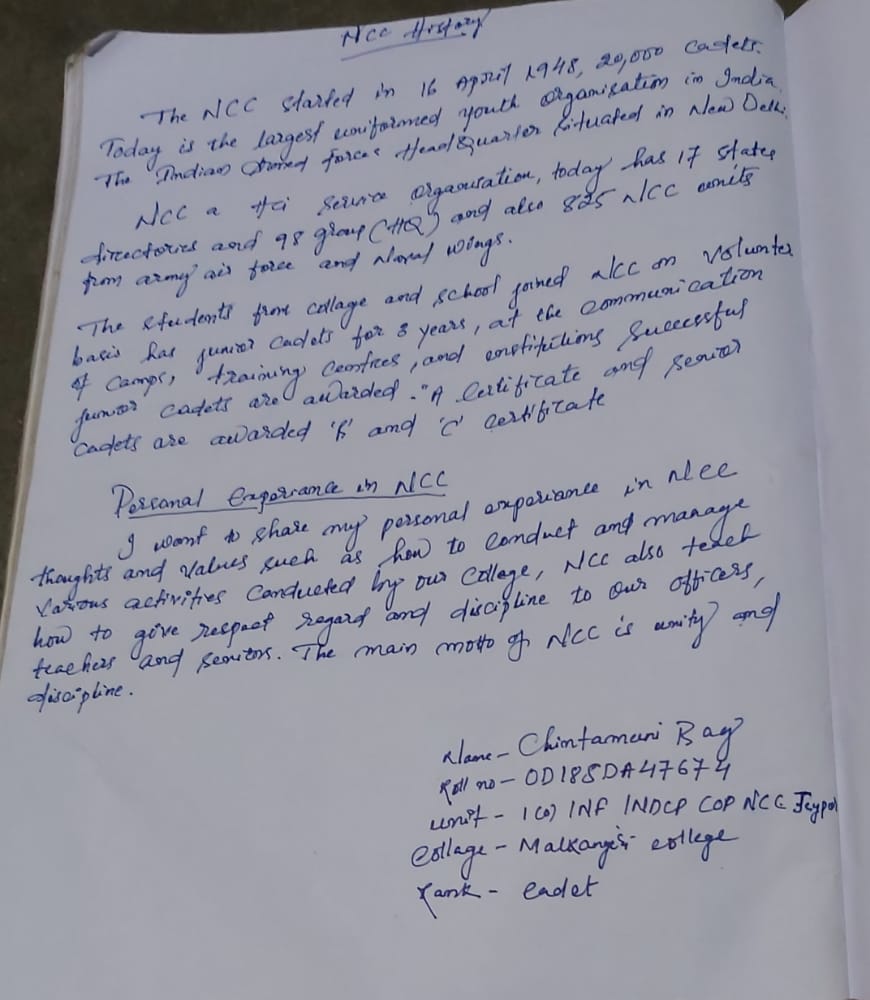 NCC History
The NCC started in 16 April 1948, 20,000 cadets.
Today is the largest uniformed youth organisation in India.
The Indian Armed forces Headquarter situated in New Delhi.
NCC a tri service organisation, today has 17 states
directories and 98 group (HQ) and also 825 NCC units
from army air force and Naval wings.
The students from collage and school joined NCC on Volunter
basis has junior Cadets for 3 years, at the communication
of camps, training centres, and constitutions successful
junior cadets are awarded. "A certificate and senior
cadets are awarded 'B' and 'C' certificate
Personal Experiance in NCC
I want to share my personal experiance in Ncc
thoughts and values such as how to conduct and manage
various activities conducted by our College, NCC also teach
how to give respect regard and discipline to our officers,
teachers and senitors. The main motto of NCC is unity and
discipline.
Name - Chintamani Bag
Roll no - OD18SDA47674
unit - 1 (O) INF INDCP COP NCC Jeypor
Collage - Malkangiri college
rank - cadet